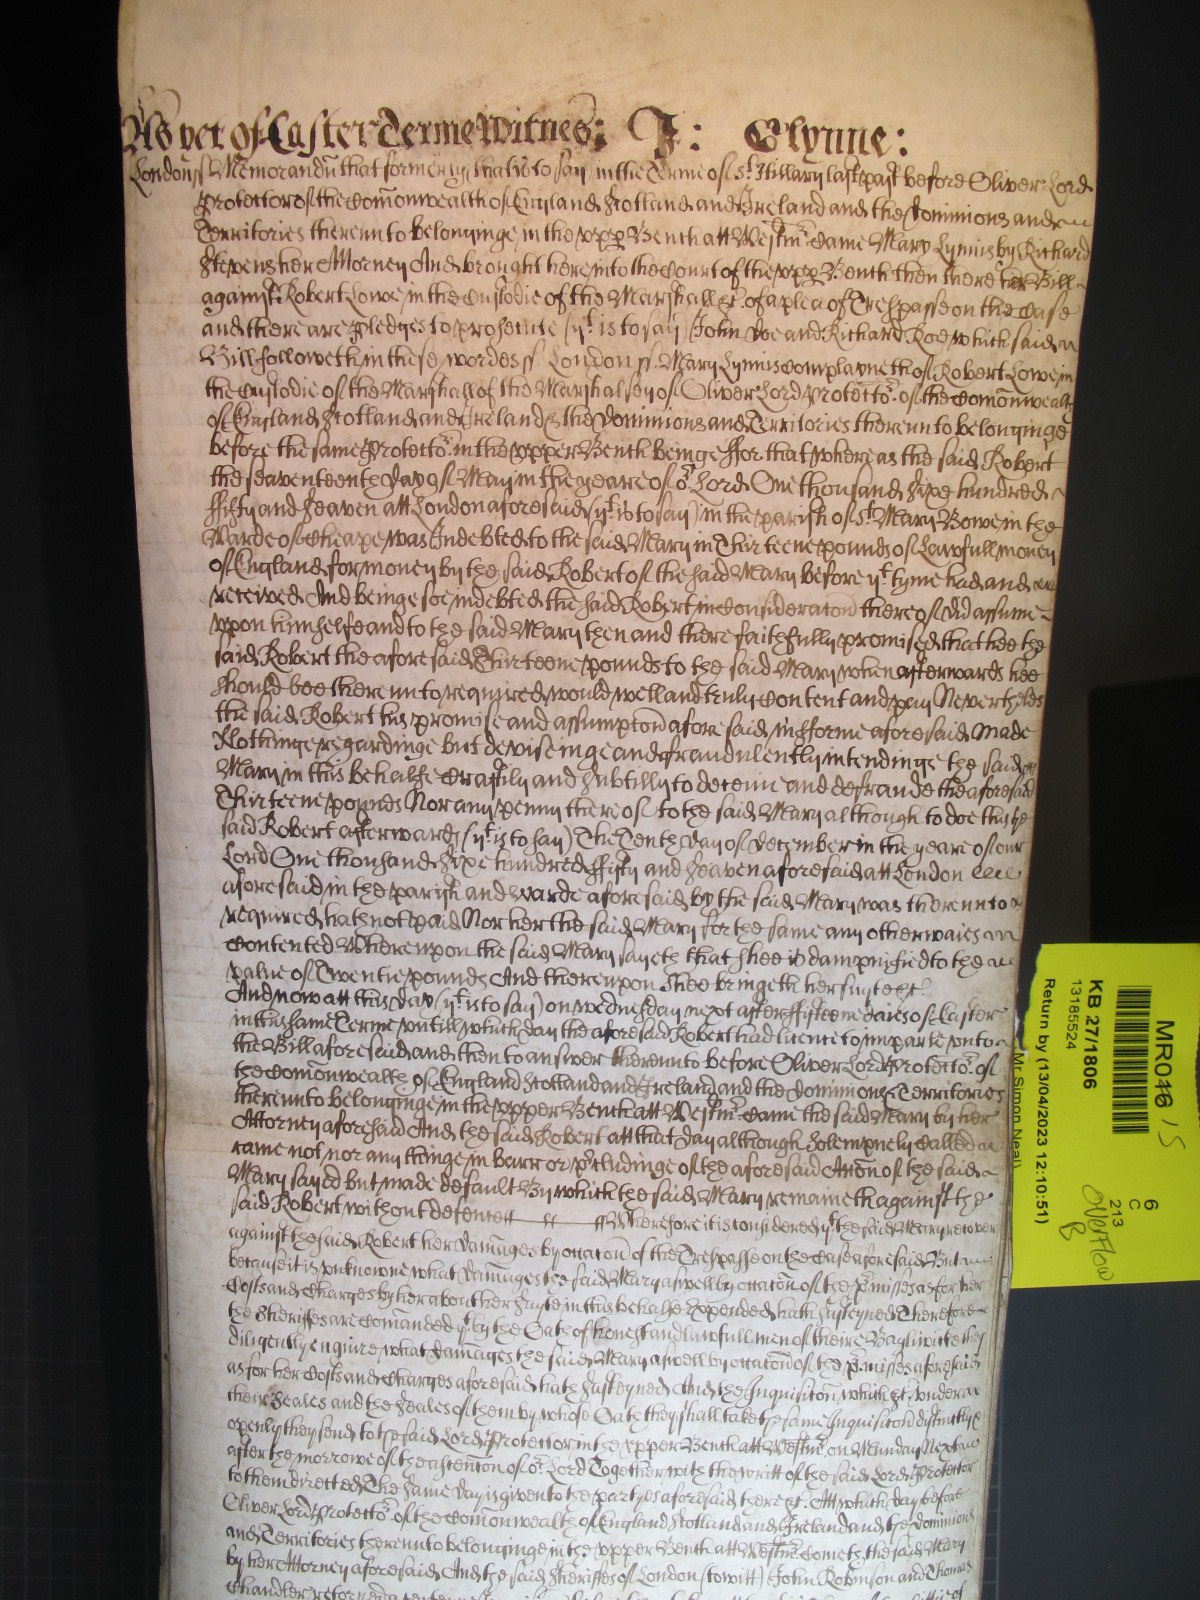 As yet of Easter Terme Witnes: J: Glynne:
London ss Memorandū that formerly that is to say in the Terme of St Hillary last past before Oliver Lord
Protector of the Com̄onwealth of England Scotland and Ireland and the Dominions and
Territories thereunto belonginge in the upp Bench att Westmr Came Mary Lymis by Richard
Stevens her Attorney And brought here into the Court of the upp Bench then there her Bill
against Robert Lowe in the Custodie of the Marshall &c of a plea of Trespasse on the Case
and there are pledges to prosecute (yt is to say) John Doe and Richard Roe which said
Bill followeth in these wordes ss London ss Mary Lymis Complayneth of Robert Lowe in
the Custodie of the Marshall of the Marshalsey of Oliver Lord Protector of the Com̄onwealth
of England Scotland and Ireland & the Dominions and Territories thereunto belonginge
before the same Protector in the Upper Bench beinge ffor that whereas the said Robert
the seaventeenth Day of May in the yeare of or Lord One thousand sixe hundred
ffifty and seaven att London aforesaid (yt is to say) in the parish of St Mary Bowe in the
Warde of Cheape was Indebted to the said Mary in Thirteene pounds of Lawfull money
of England for money by the said Robert of the said Mary before yt tyme had and
received And beinge soe indebted the said Robert in Consideracōn thereof did assume
upon himselfe and to the said Mary then and there faithfully promised that hee the
said Robert the aforesaid Thirteene pounds to the said Mary when afterwards hee
should bee thereunto required would well and truly Content and pay Neverthelesse
the said Robert his promise and assumptōn aforesaid in fforme aforesaid made
Nothinge regardinge but deviseinge and fraudulently intendinge the said
Mary in this behalfe Craftily and subtilly to deceive and defraude the aforesaid
Thirteene pounds Nor any penny thereof to the said Mary although to doe this the
said Robert afterwards (yt is to say) The Tenth day of December in the yeare of our
Lord One thousand sixe hundred ffifty and seaven aforesaid att London
aforesaid in the parish and warde aforesaid by the said Mary was thereunto
required hath not paid Nor her the said Mary for the same any otherwaies
Contented Whereupon the said Mary sayeth that shee is dampnified to the
value of Twentie pounds And thereupon shee bringeth her suyte &c
And now att this day (yt is to say) on wednesday next after ffifteene daies of Easter
in this same Terme untill which day the aforesaid Robert had licence to imparle unto
the Bill aforesaid and then to answer thereunto before Oliver Lord Protector of
the Com̄onwealth of England Scotland and Ireland and the Dominions & Territories
thereunto belonginge in the upper Bench att Westmr Came the said Mary by her
Attorney aforesaid And the said Robert att that day although solempnely Called
came not nor any thinge in barr or pcludinge of the aforesaid Acc̄on of the said
Mary sayed but made default By which the said Mary remaineth against the
said Robert without defence Wherefore it is considered yt the said Mary recover
against the said Robert her damages by occacōn of the Trespasse on the Case aforesaid But
because it is unknowne what damages the said Mary aswell by occacōn of the pmisses as for her
Costs and Charges by her about her suyte in this behalfe expended hath susteyned Therefore
the Sheriffes are Com̄anded yt by the Oath of honest and lawfull men of theire Baylywicke they
diligently enquire what damages the said Mary aswell by occacōn of the pmisses aforesaid
as for her Costs and Charges aforesaid hath susteyned And the Inquisicōn which &c under
their Seales and the Seales of them by whose Oath they shall take the same Inquisicōn distinctly &
openly they send to the said Lord Protector in the upper Bench att Westmr on Munday Next
after the morrowe of the ascencōn of or Lord Together with the writt of the said Lord Protector
to them directed The same day is given to the partyes aforesaid there &c Att which day before
Oliver Lord Protector of the Com̄onwealth of England Scotland and Ireland and the Dominions
and Territories thereunto belonginge in the upper Bench att Westmr Cometh the said Mary
by her Attorney aforesaid And the said Sheriffes of London (to witt) John Robinson and Thomas
Chandler
MR046
15
KB 27/1806
13185524
Return by (13/04/2023 12:10:51)
Mr Simon Neal)
6
C
213
Overflow
B